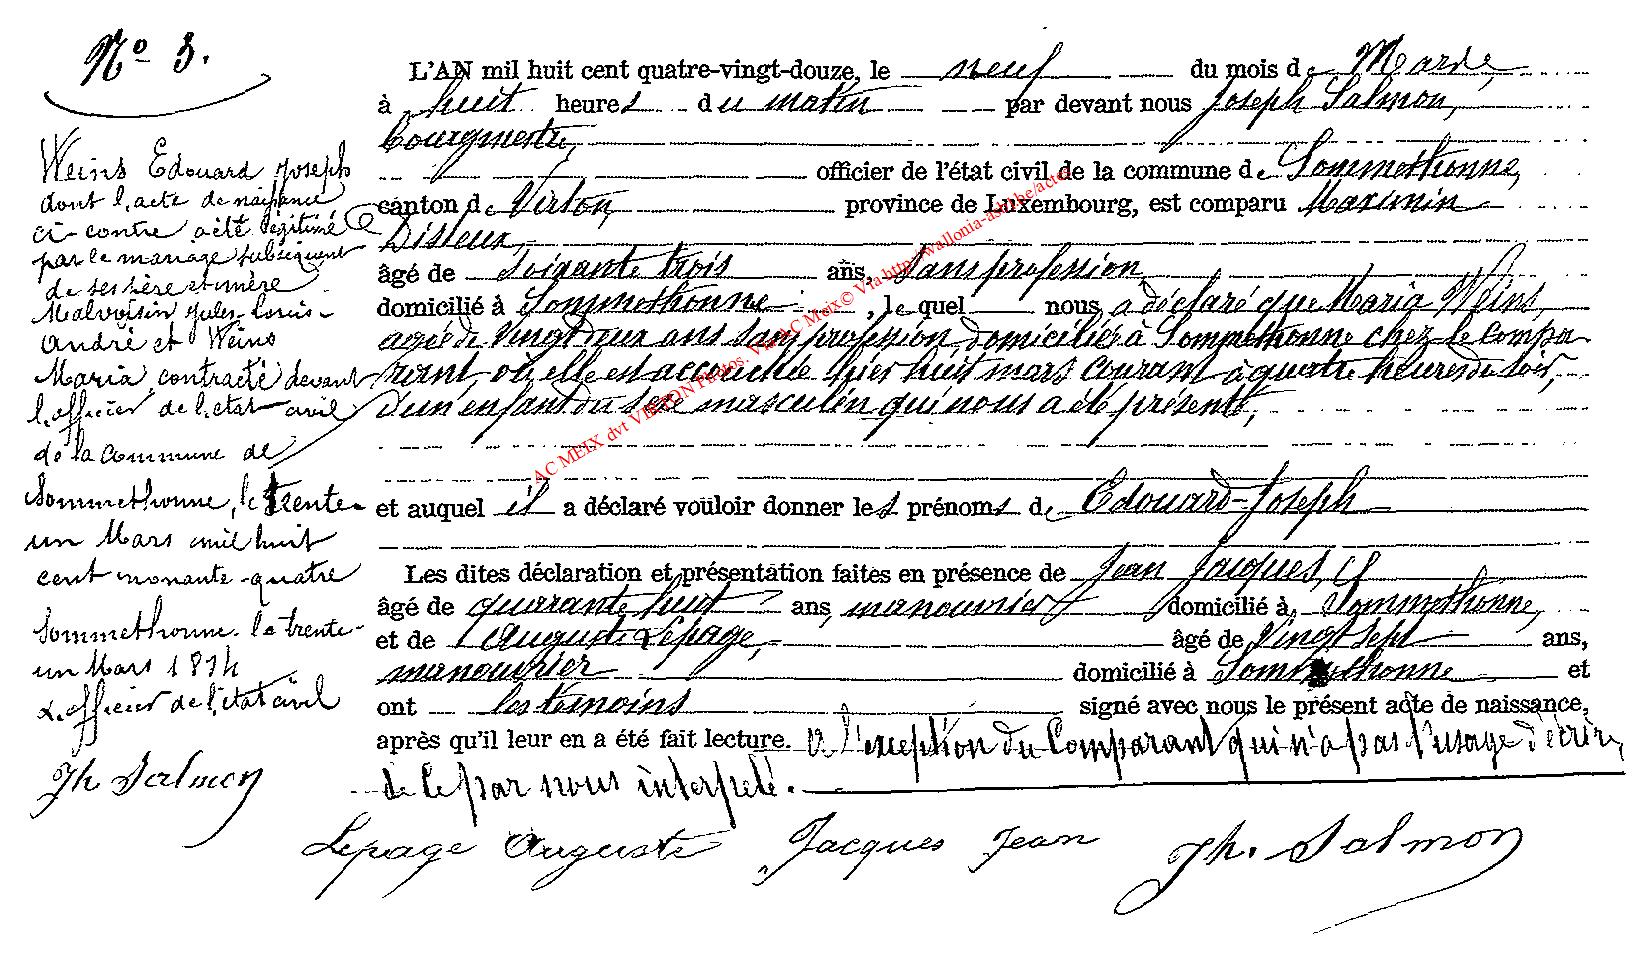 No 3.
Weins Edouard Joseph
dont l'acte de naissance
ci-contre a été légitimé
par le mariage subséquent
de ses père et mère
Malvoisin Jules-Louis-
André et Weins
Maria, contracté devant
l'officier de l'état civil
de la commune de
Sommethonne, le trente-
un Mars mil huit
cent nonante-quatre
Sommethonne. le trente-
un Mars 1894
L'officier de l'état civil
Jh Salmon
L'AN mil huit cent quatre-vingt-douze, le neuf du mois de Mars,
à huit heures du matin par devant nous Joseph Salmon,
bourgmestre,
officier de l'état civil de la commune de Sommethonne,
canton de Virton, province de Luxembourg, est comparu Maximin
Disseux,
âgé de soixante trois ans, sans profession,
domicilié à Sommethonne, lequel nous a déclaré que Maria Weins,
agée de vingt deux ans sans profession, domiciliée à Sommethonne chez le compa-
rant, où elle est accouchée hier huit mars courant à quatre heures du soir,
d'un enfant du sexe masculin qui nous a été présenté,
et auquel il a déclaré vouloir donner les prénoms de Edouard-Joseph
Les dites déclaration et présentation faites en présence de Jean Jacques,
âgé de quarante huit ans, manouvrier domicilié à Sommethonne,
et de Auguste Lepage, âgé de vingt sept ans,
manouvrier domicilié à Sommethonne et
ont les témoins signé avec nous le présent acte de naissance,
après qu'il leur en a été fait lecture. à l'exception du Comparant qui n'a pas l'usage d'écrire,
de ce par nous interpelé.
Lepage Auguste Jacques Jean Jh. Salmon
AC MEIX dvt VIRTON Photos. Via AC Meix© Via http://wallonia-asbl.be/actes